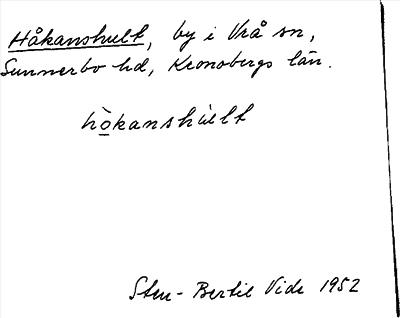 Håkanshult, by i Vrå sn,
Sunnerbo hd, Kronobergs län.
hò̲kanshùlt
Sten-Bertil Vide 1952